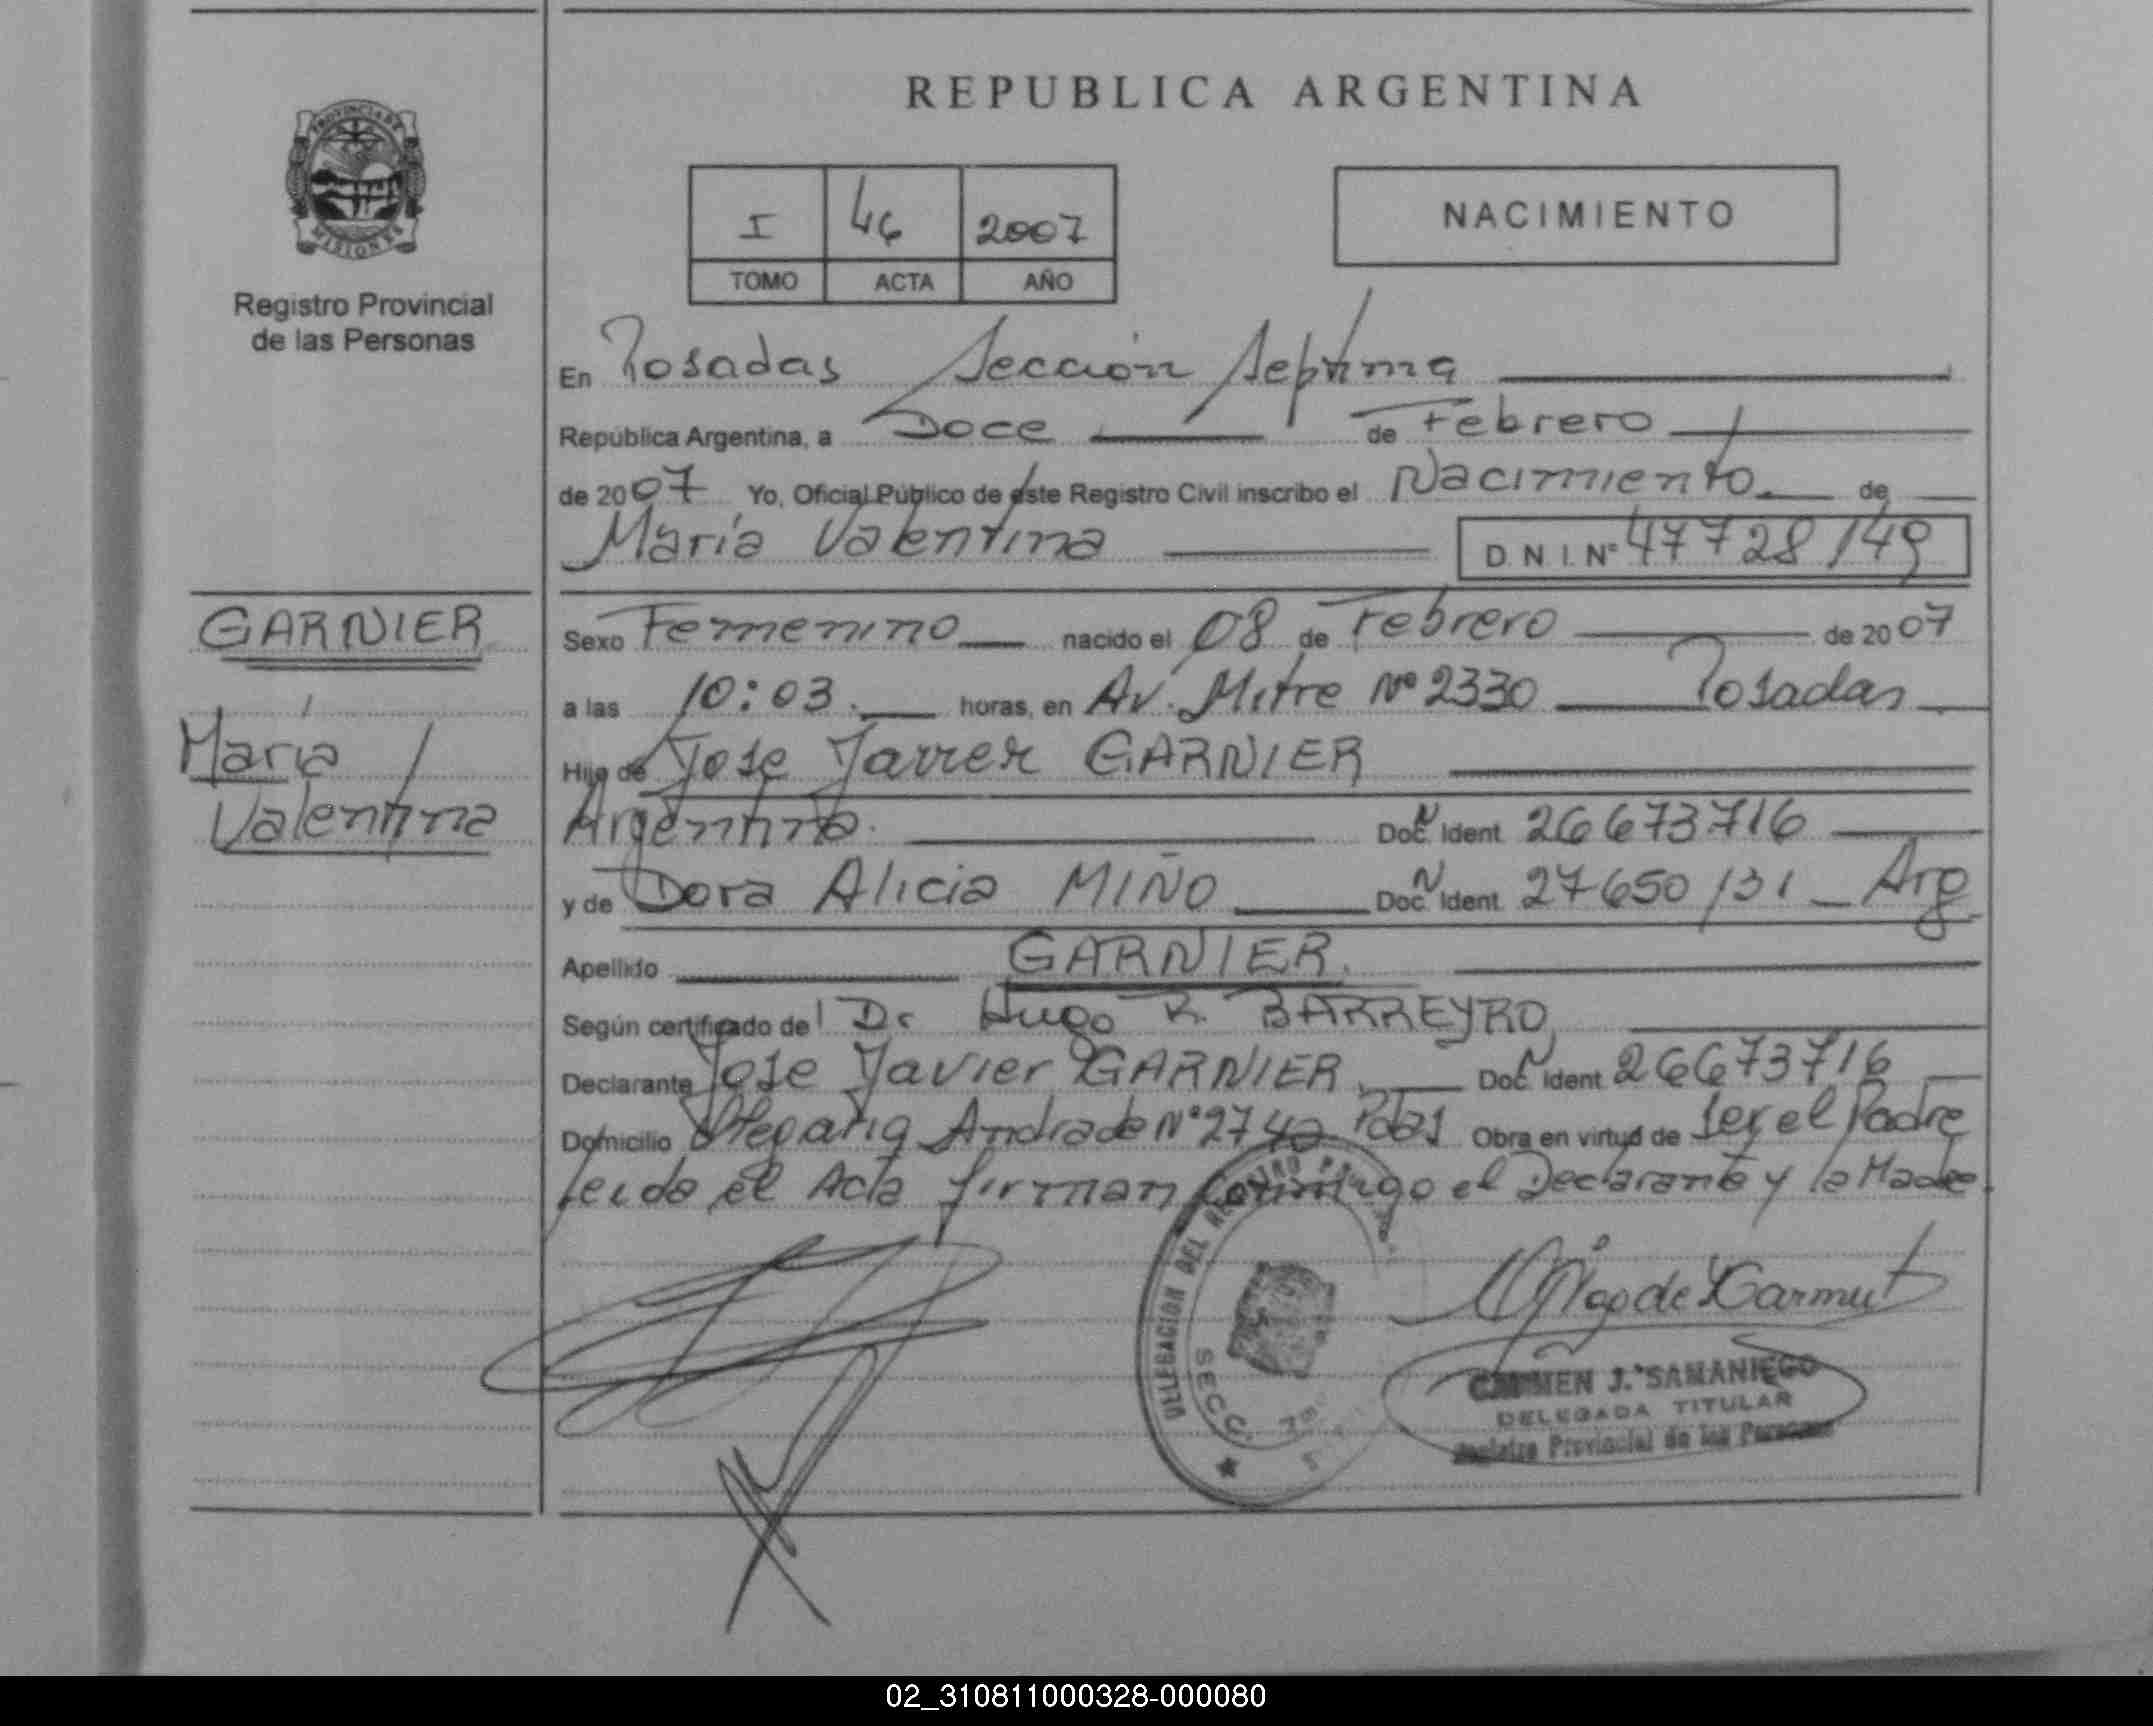 PROVINCIA DE
MISIONES
Registro Provincial
de las Personas
REPUBLICA ARGENTINA
I 46 2007
TOMO ACTA AÑO
NACIMIENTO
En Posadas Sección Septima
República Argentina, a Doce de Febrero
de 2007 Yo, Oficial Público de este Registro Civil inscribo el Nacimiento de
María Valentina D.N.I.Nº 47728149
GARNIER
María
Valentina
Sexo Femenino nacido el 08 de Febrero de 2007
a las 10:03. horas, en Av. Mitre Nº 2330 Posadas
Hijo de Jose Javier GARNIER
Argentina. Doc. Ident. 26673716
y de Dora Alicia MIÑO Doc. Ident. 27650131 Arg
Apellido GARNIER.
Según certificado del Dr Hugo R. BARREYRO
Declarante Jose Javier GARNIER Doc. Ident. 26673716
Domicilio Olegario Andrade Nº 2742 Pdas Obra en virtud de ser el Padre
leido el Acta firman conmigo el Declarante y la Madre.
DELEGACION DEL REGISTRO
SECC.
CARMEN J. SAMANIEGO
DELEGADA TITULAR
Registro Provincial de las Personas
02_310811000328-000080